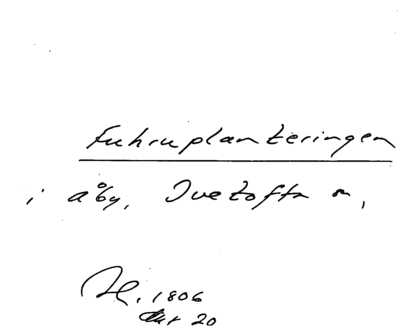 Fuhruplanteringen
i åby, Ivetofta sn,
H. 1806
20